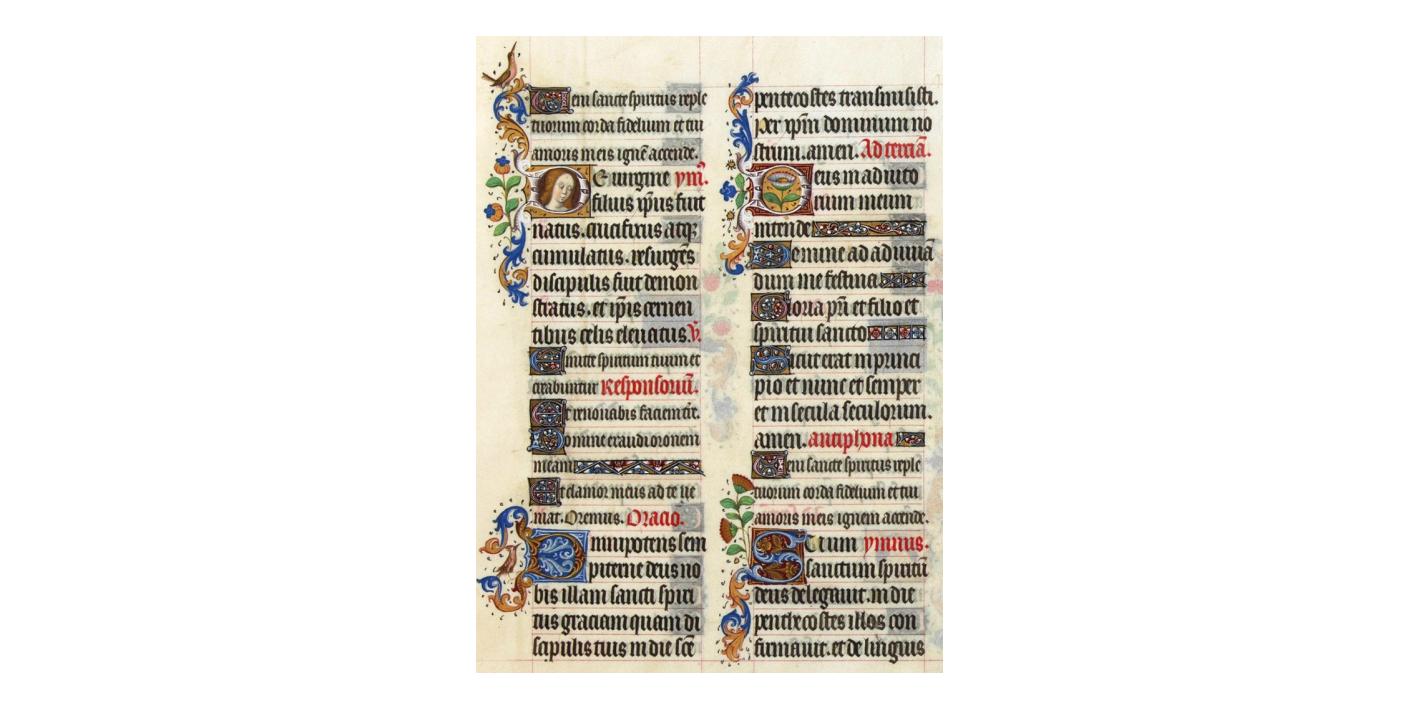 Veni sancte spiritus reple
tuorum corda fidelium et tui
amoris meis ignē accende.
De uirgine ym̄.
filius xp̄us fuit
natus. crucifixus atqꝫ
cumulatus. resurgēs
discipulis fuit demon
stratus. et ip̄is cernen
tibus celis eleuatus. V̄.
Emitte spiritum tuum et
creabuntur Responsoriū.
Et renouabis faciem
Domine exaudi oronem
meam
Et clamor meus ad te ue
niat. Oremus. Oracio.
Omnipotens sem
piterne deus no
bis illam sancti spiri
tus graciam quam di
scipulis tuis in die scē
pentecostes transmisisti.
per xp̄m dominum no
strum. amen. Ad terciā.
Deus in adiuto
rium meum
intende
Domine ad adiuuā
dum me festina
Gloria pr̄i et filio et
spiritui sancto
Sicut erat in princi
pio et nunc et semper
et in secula seculorum.
amen. antiphona
Veni sancte spiritus reple
tuorum corda fidelium et tui
amoris meis ignem accende.
Suum ymnus.
sanctum spiritū
deus delegauit. in die
penthecostes illos con
firmauit. et de linguis